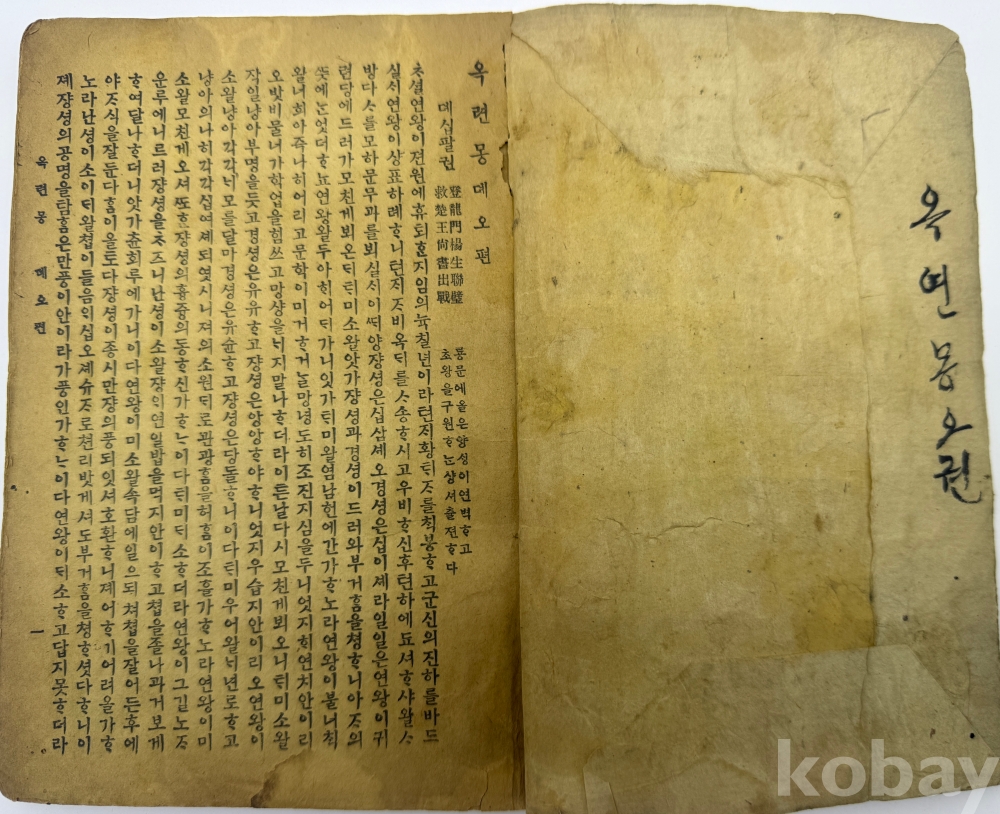 옥연몽오권
옥련몽뎨오편
뎨십팔권
登龍門楊生聯璧
救楚王尙書出戰
룡문에올은양성이연벽ᄒᆞ고
초왕을구원ᄒᆞᄂᆞᆫ상셔츌젼ᄒᆞ다
ᄎᆞ셜연왕이젼원에휴퇴ᄒᆞᆫ지임의칠년이라텬ᄌᆞ황ᄐᆡᄌᆞ를ᄎᆡᆨ봉ᄒᆞ고군신의진하를바드
실ᄉᆡ연왕이상표하례ᄒᆞ니텬ᄌᆞ비옥ᄃᆡ를ᄉᆞ송ᄒᆞ시고우비ᄒᆞ신후텬하에됴셔ᄒᆞ샤왈ᄉᆞ
방다ᄉᆞ를모하문무과를뵈실ᄉᆡ이ᄯᆡ양쟝셩은십삼셰오경셩은십이셰라일일은연왕이귀
련당에드러가모친게뵈온ᄃᆡᄐᆡ미소왈앗가쟝셩과경셩이드러와부거ᄒᆞᆷ을쳥ᄒᆞ니아ᄌᆞ의
ᄯᅳᆺ에ᄂᆞᆫ엇더ᄒᆞ뇨연왕왈두아ᄒᆡ어ᄃᆡ가니잇가ᄐᆡ미왈염남헌에간가ᄒᆞ노라연왕이불너ᄎᆡᆨ
왈너희아즉나히어리고문학이미거ᄒᆞ거ᄂᆞᆯ망녕도히조진지심을두니엇지ᄒᆡ연치안이리
오밧비물너가학업을힘쓰고망샹을ᄂᆡ지말나ᄒᆞ더라이튼날다시모친게뵈오니ᄐᆡ미소왈
작일냥아부명을듯고경셩은유유ᄒᆞ고쟝셩은앙앙ᄒᆞ야ᄒᆞ니엇지우습지안이리오연왕이
소왈냥아각각ᄂᆡ모를달마경셩은유슌ᄒᆞ고쟝셩은당돌ᄒᆞ니이다ᄐᆡ미우어왈ᄂᆡ년로ᄒᆞ고
냥아의나히각각십여셰되엿시니져의소원ᄃᆡ로관광ᄒᆞᆷ을허ᄒᆞᆷ이조흘가ᄒᆞ노라연왕이미
소왈모친게오셔ᄯᅩᄒᆞᆫ쟝셩의흉즁의동ᄒᆞ신가ᄒᆞᄂᆞ이다ᄐᆡ미ᄃᆡ소ᄒᆞ더라연왕이그길노ᄌᆞ
운루에니르러쟝셩을ᄎᆞ즈니난셩이소왈쟝이연일밥을먹지안이ᄒᆞ고쳡을졸나과거보게
ᄒᆞ여달나ᄒᆞ더니앗가츈회루에가니이다연왕이미소왈속담에일으되쳐쳡을잘어든후에
야ᄌᆞ식을잘둔다ᄒᆞᆷ이올토다쟝셩이종시만쟝의풍되잇셔호환ᄒᆞ니졔어ᄒᆞ기어려울가ᄒᆞ
노라난셩이소이ᄃᆡ왈쳡이들음의십오셰슈ᄌᆞ로쳔리밧게셔도부거ᄒᆞᆷ을쳥ᄒᆞ셧다ᄒᆞ니이
졔쟝셩의공명을탐ᄒᆞᆷ은만풍이안이라가풍인가ᄒᆞᄂᆞ이다연왕이ᄃᆡ소ᄒᆞ고답지못ᄒᆞ더라
옥련몽 뎨오편 一
kobay